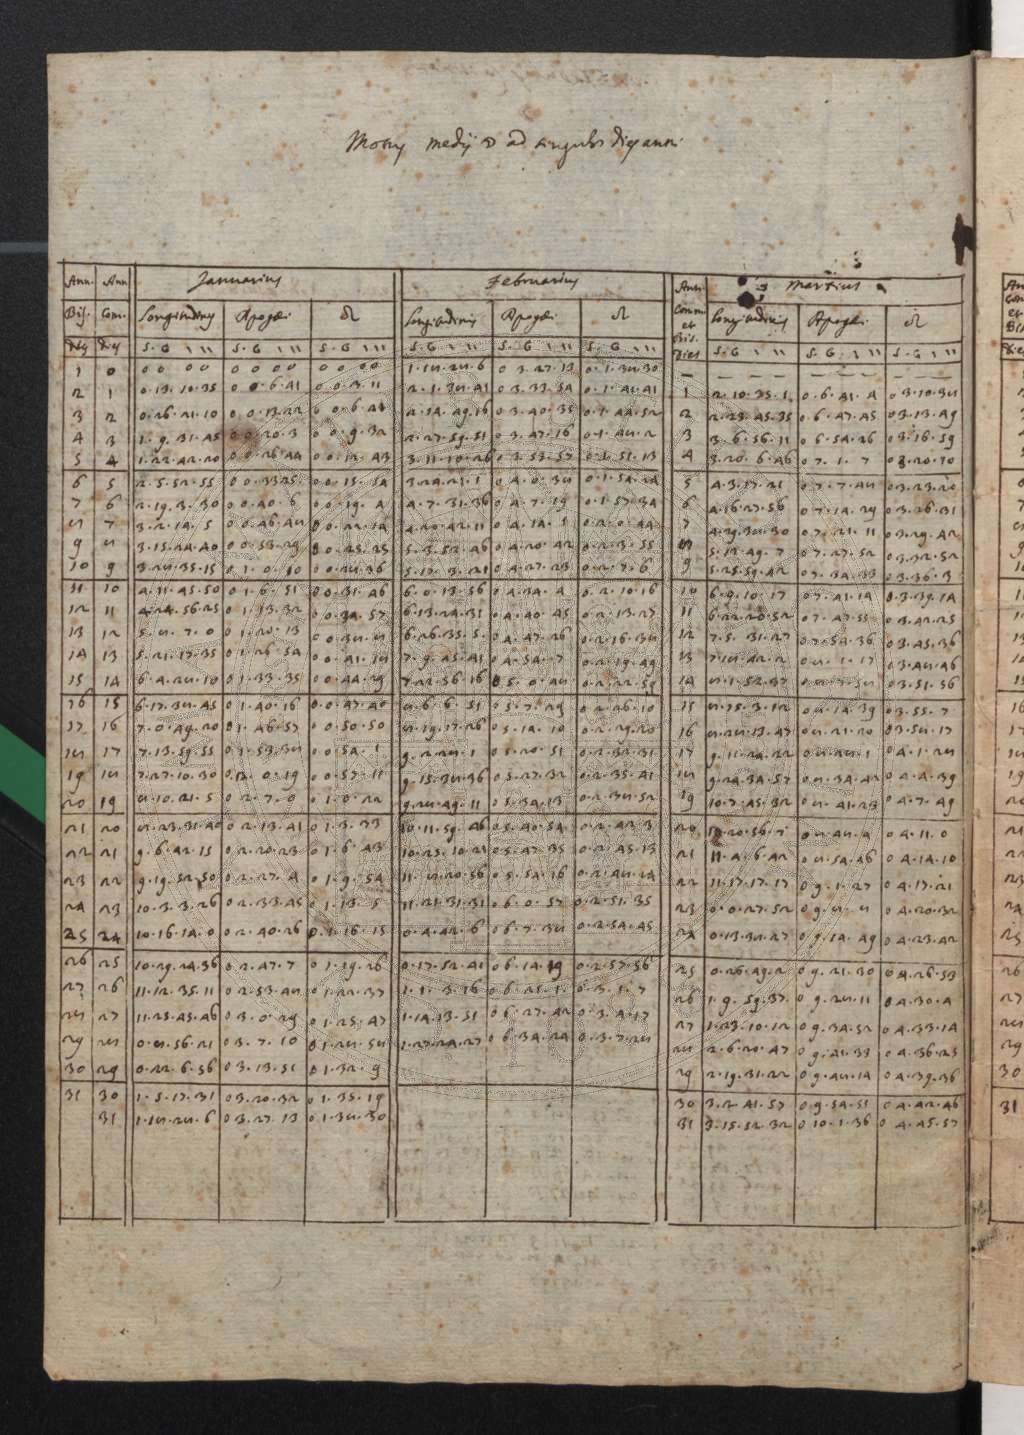 Motus medij ☽ ad singulos dies anni
Ann. Ann Januarius Februarius Ann. Martius
Bis. Com. Longitudinis Apogæi ☊ Longitudinis Apogæi ☊ Comm. et Bis. Longitudinis Apogæi ☊
dies dies S. G ' '' S. G ' '' S. G ' '' S. G ' '' S. G ' '' S. G ' '' Dies S. G ' '' S. G ' '' S. G ' ''
1 0 0 0 0 0 0 0 0 0 0 0 0 0 1.18.28.6 0 3.27.13 0.1.38.30 — — — — — — — — — —
2 1 0.13.10.35 0 0.6.41 0 0.3.11 2.1.38.41 0 3.33.54 0.1.41.41 1 2.10.35.1 0.6.41.4 0 3.10.38
3 2 0.26.21.10 0 0.13.22 0 0.6.21 2.14.49.16 0 3.40.35 0.1.44.52 2 2.23.45.35 0 6.47.45 0 3.13.49
4 3 1.9.31.45 0 0.20.3 0 0.9.32 2.27.59.51 0 3.47.16 0.1.48.2 3 3.6.56.11 0 6.54.26 0 3.16.59
5 4 1.22.42.20 0 0.26.44 0 0.12.43 3.11.10.26 0 3.53.57 0.1.51.13 4 3.20.6.46 0 7.1.7 0 3.20.10
6 5 2.5.52.55 0 0.33.25 0 0.15.54 3.24.21.1 0 4.0.38 0.1.54.24 5 4.3.17.21 0 7.7.48 0 3.23.20
7 6 2.19.3.30 0 0.40.6 0 0.19.4 4.7.31.36 0 4.7.19 0 1.57.34 6 4.16.27.56 0 7.14.29 0 3.26.31
8 7 3.2.14.5 0 0.46.48 0 0.22.14 4.20.42.11 0 4.14.1 0.2.0.44 7 4.29.38.30 0 7.21.11 0 3.29.42
9 8 3.15.24.40 0 0.53.29 0 0.25.25 5.3.52.46 0 4.20.42 0.2.3.55 8 5.12.49.7 0 7.27.52 0 3.32.52
10 9 3.28.35.15 0 1.0.10 0 0.28.36 5.17.3.21 0 4.27.23 0.2.7.6 9 5.25.59.42 0 7.34.33 0 3.36.3
11 10 4.11.45.50 0 1.6.51 0 0.31.46 6.0.13.56 0 4.34.4 0.2.10.16 10 6.9.10.17 0 7.41.14 0.3.39.14
12 11 4.24.56.25 0 1.13.32 0 0.34.57 6.13.24.31 0 4.40.45 0.2.13.27 11 6.22.20.52 0 7.47.55 0 3.42.25
13 12 5.8.7.0 0 1.20.13 0 0.38.8 6.26.35.5. 0 4.47.26 0.2.16.38 12 7.5.31.27 0 7.54.36 0 3.45.36
14 13 5.21.17.35 0 1.26.54 0 0.41.18 7.9.45.41 0 4.54.7 0.2.19.49 13 7.18.42.2 0 8.1.17 0 3.48.46
15 14 6.4.28.10 0 1.33.35 0 0.44.29 7.22.56.16 0 5.0.48 0.2.22.59 14 8.1.52.37 0 8.7.58 0 3.51.56
16 15 6.17.38.45 0 1.40.16 0 0.47.40 8.6.6.51 0 5.7.29 0.2.26.10 15 8.15.3.12 0 8.14.39 0 3.55.7
17 16 7.0.49.20 0 1.46.57 0 0.50.50 8.19.17.26 0 5.14.10 0.2.29.20 16 8.28.13.47 0 8.21.20 0 3.58.17
18 17 7.13.59.55 0 1.53.38 0 0.54.1 9.2.28.1 0 5.20.51 0.2.32.31 17 9.11.24.22 0 8.28.1 0 4.1.28
19 18 7.27.10.30 0 2.0.19 0 0.57.11 9.15.38.36 0 5.27.32 0.2.35.41 18 9.24.34.57 0 8.34.42 0 4.4.39
20 19 8.10.21.5 0 2.7.0 0 1.0.22 9.28.49.11 0 5.34.13 0.2.38.52 19 10.7.45.32 0 8.41.23 0 4.7.49
21 20 8.23.31.40 0 2.13.41 0 1.3.33 10.11.59.46 0 5.40.54 0.2.42.3 20 10.20.56.7 0 8.48.4 0 4.11.0
22 21 9.6.42.15 0 2.20.23 0 1.6.43 10.25.10.21 0 5.47.35 0.2.45.13 21 11.4.6.42 0 8.54.46 0 4.14.10
23 22 9.19.52.50 0 2.27.4 0 1.9.54 11.8.20.56 0 5.54.16 0.2.48.24 22 11.17.17.17 0 9.1.27 0 4.17.21
24 23 10.3.3.26 0 2.33.45 0 1.13.5 11.21.31.31 0 6.0.57 0.2.51.35 23 0.0.27.52 0 9.8.8 0 4.20.32
25 24 10.16.14.0 0 2.40.26 0.1.16.15 0.4.42.6 0 6.7.38 0.2.54.45 24 0.13.38.27 0 9.14.49 0 4.23.42
26 25 10.29.24.36 0 2.47.7 0 1.19.26 0.17.52.41 0 6.14.19 0.2.57.56 25 0.26.49.2 0 9.21.30 0 4.26.53
27 26 11.12.35.11 0 2.53.48 0 1.22.37 1.1.3.16 0 6.21.1 0.3.1.7 26 1.9.59.37. 0 9.28.11 0 4.30.4
28 27 11.25.45.46 0 3.0.29 0 1.25.47 1.14.13.51 0 6.27.42 0.3.4.17 27 1.23.10.12 0 9.34.52 0 4.33.14
29 28 0.8.56.21 0 3.7.10 0 1.28.58 1.27.24.27 0 6.34.24 0.3.7.28 28 2.6.20.47 0 9.41.33 0 4.36.25
30 29 0.22.6.56 0 3.13.51 0 1.32.9 29 2.19.31.22 0 9.48.14 0 4.39.36
31 30 1.5.17.31 0 3.20.32 0 1.35.19 30 3.2.41.57 0 9.54.55 0 4.42.46
31 1.18.28.6 0 3.27.13 0 1.38.30 31 3.15.52.32 0 10.1.36 0 4.45.57